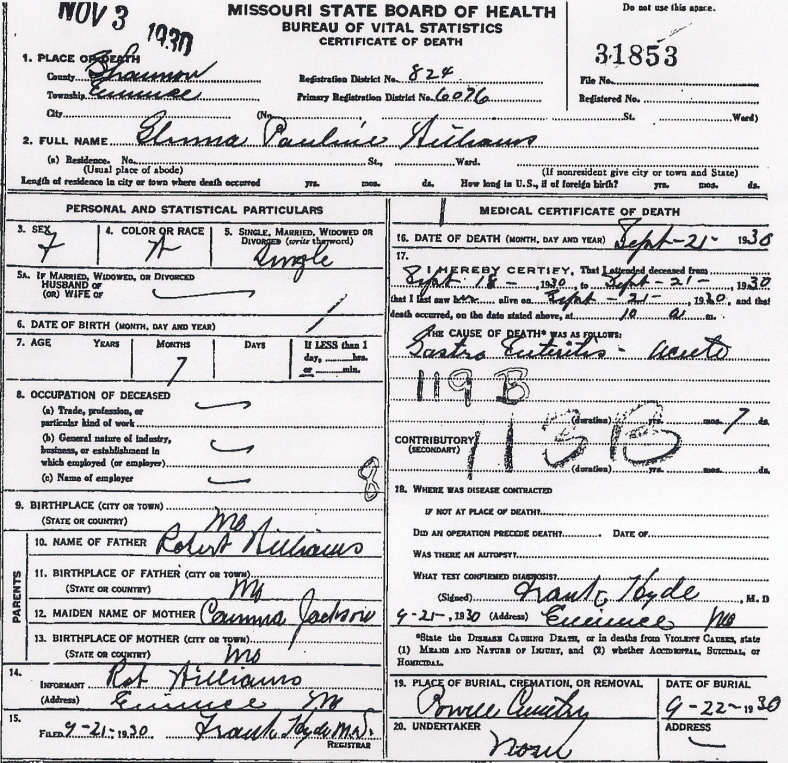 NOV 3 1930
MISSOURI STATE BOARD OF HEALTH
BUREAU OF VITAL STATISTICS
CERTIFICATE OF DEATH
Do not use this space.
31853
1. PLACE OF DEATH
County Shannon Registration District No. 824 File No.
Township Eminence Primary Registration District No. 6076 Registered No.
City (No. St. Ward)
2. FULL NAME Pauline Williams
(a) Residence. No. St., Ward.
(Usual place of abode) (If nonresident give city or town and State)
Length of residence in city or town where death occurred yrs. mos. ds. How long in U.S., if of foreign birth? yrs. mos. ds.
PERSONAL AND STATISTICAL PARTICULARS
3. SEX 4. COLOR OR RACE 5. SINGLE, MARRIED, WIDOWED OR
DIVORCED (write the word)
f W Single
5A. IF MARRIED, WIDOWED, OR DIVORCED
HUSBAND OF
(OR) WIFE OF
6. DATE OF BIRTH (MONTH, DAY AND YEAR)
7. AGE YEARS MONTHS DAYS If LESS than 1
day, hrs.
7 or min.
8. OCCUPATION OF DECEASED
(a) Trade, profession, or
particular kind of work
(b) General nature of industry,
business, or establishment in
which employed (or employer)
(c) Name of employer
8
9. BIRTHPLACE (CITY OR TOWN)
(STATE OR COUNTRY) Mo
PARENTS
10. NAME OF FATHER Robert Williams
11. BIRTHPLACE OF FATHER (CITY OR TOWN)
(STATE OR COUNTRY) Mo
12. MAIDEN NAME OF MOTHER Jackson
13. BIRTHPLACE OF MOTHER (CITY OR TOWN)
(STATE OR COUNTRY) Mo
14.
INFORMANT Rob Williams
(Address) Eminence Mo
15.
FILED 9-21-1930 Frank Hyde M.D.
REGISTRAR
MEDICAL CERTIFICATE OF DEATH
16. DATE OF DEATH (MONTH, DAY AND YEAR) Sept-21- 1930
17.
I HEREBY CERTIFY, That I attended deceased from
Sept 18-, 1930, to Sept-21-, 1930
that I last saw alive on Sept-21-, 1930, and that
death occurred, on the date stated above, at 10 a m.
THE CAUSE OF DEATH* WAS AS FOLLOWS:
Gastro Enteritis - acute
119 B
(duration) yrs. mos. 7 ds.
CONTRIBUTORY
(SECONDARY)
113B
(duration) yrs. mos. ds.
18. WHERE WAS DISEASE CONTRACTED
IF NOT AT PLACE OF DEATH?
DID AN OPERATION PRECEDE DEATH? DATE OF
WAS THERE AN AUTOPSY?
WHAT TEST CONFIRMED DIAGNOSIS?
(Signed) Frank Hyde, M.D
9-21-, 1930 (Address) Eminence Mo
*State the DISEASE CAUSING DEATH, or in deaths from VIOLENT CAUSES, state
(1) MEANS AND NATURE OF INJURY, and (2) whether ACCIDENTAL, SUICIDAL, or
HOMICIDAL.
19. PLACE OF BURIAL, CREMATION, OR REMOVAL DATE OF BURIAL
Powell Cemetry 9-22-1930
20. UNDERTAKER ADDRESS
None